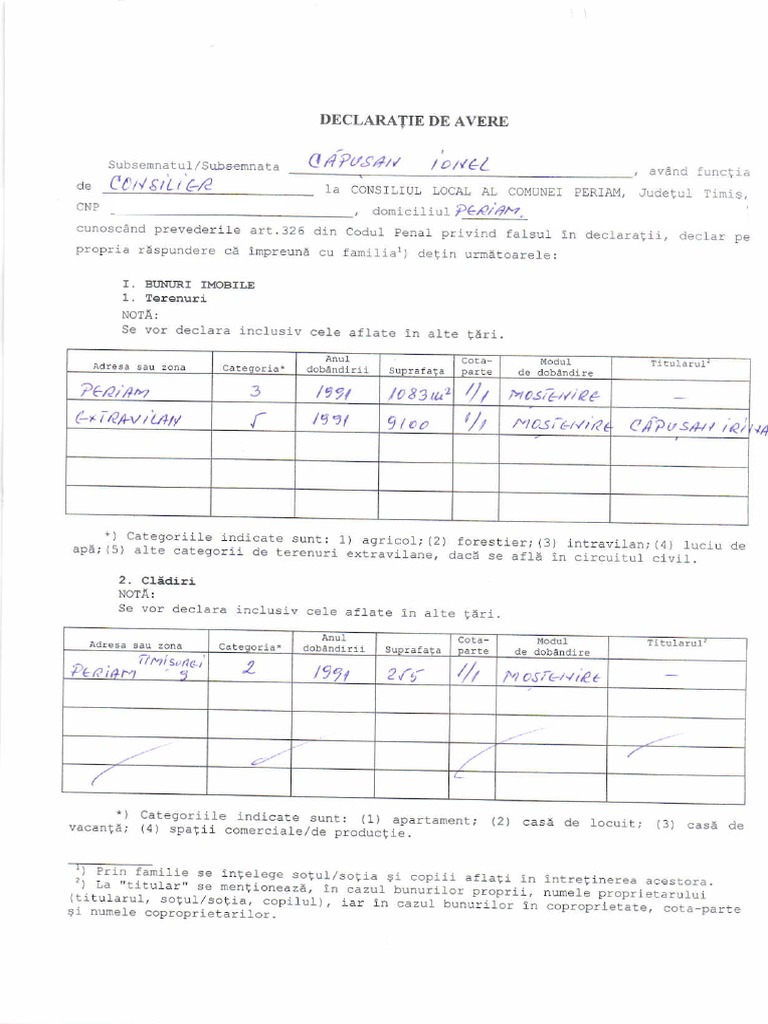 DECLARAȚIE DE AVERE
Subsemnatul/Subsemnata CĂPUSAN IONEL, având funcția
de CONSILIER la CONSILIUL LOCAL AL COMUNEI PERIAM, Județul Timis,
CNP , domiciliul PERIAM.
cunoscând prevederile art.326 din Codul Penal privind falsul în declarații, declar pe
propria răspundere că împreună cu familia¹) dețin următoarele:
I. BUNURI IMOBILE
1. Terenuri
NOTĂ:
Se vor declara inclusiv cele aflate în alte țări.
Adresa sau zona Categoria* Anul dobândirii Suprafața Cota-parte Modul de dobândire Titularul²
PERIAM 3 1991 1083 m² 1/1 MOSTENIRE –
EXTRAVILAN 5 1991 9100 1/1 MOSTENIRE CĂPUSAN IRINA
*) Categoriile indicate sunt: 1) agricol;(2) forestier;(3) intravilan;(4) luciu de
apă;(5) alte categorii de terenuri extravilane, dacă se află în circuitul civil.
2. Clădiri
NOTĂ:
Se vor declara inclusiv cele aflate în alte țări.
Adresa sau zona Categoria* Anul dobândirii Suprafața Cota-parte Modul de dobândire Titularul²
PERIAM TIMISOREI 9 2 1991 255 1/1 MOSTENIRE –
*) Categoriile indicate sunt: (1) apartament; (2) casă de locuit; (3) casă de
vacanță; (4) spații comerciale/de producție.
¹) Prin familie se înțelege soțul/soția și copiii aflați în întreținerea acestora.
²) La "titular" se menționează, în cazul bunurilor proprii, numele proprietarului
(titularul, soțul/soția, copilul), iar în cazul bunurilor în coproprietate, cota-parte
și numele coproprietarilor.